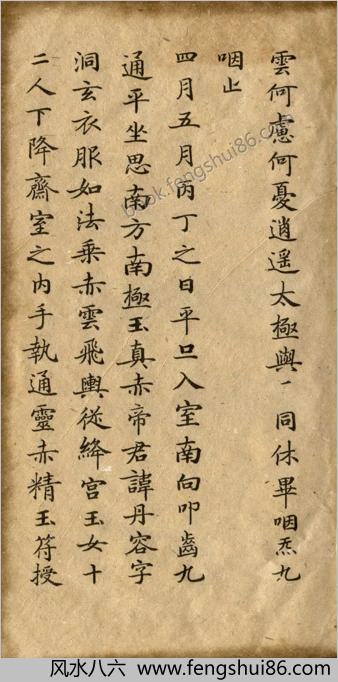 雲何慮何憂逍遥太極與一同休畢咽炁九
咽止
四月五月丙丁之日平旦入室南向叩齒九
通平坐思南方南極玉真赤帝君諱丹容字
洞玄衣服如法乗赤雲飛輿從絳宮玉女十
二人下降齋室之内手執通靈赤精玉符授
book.fengshui86.com
风水八六 www.fengshui86.com